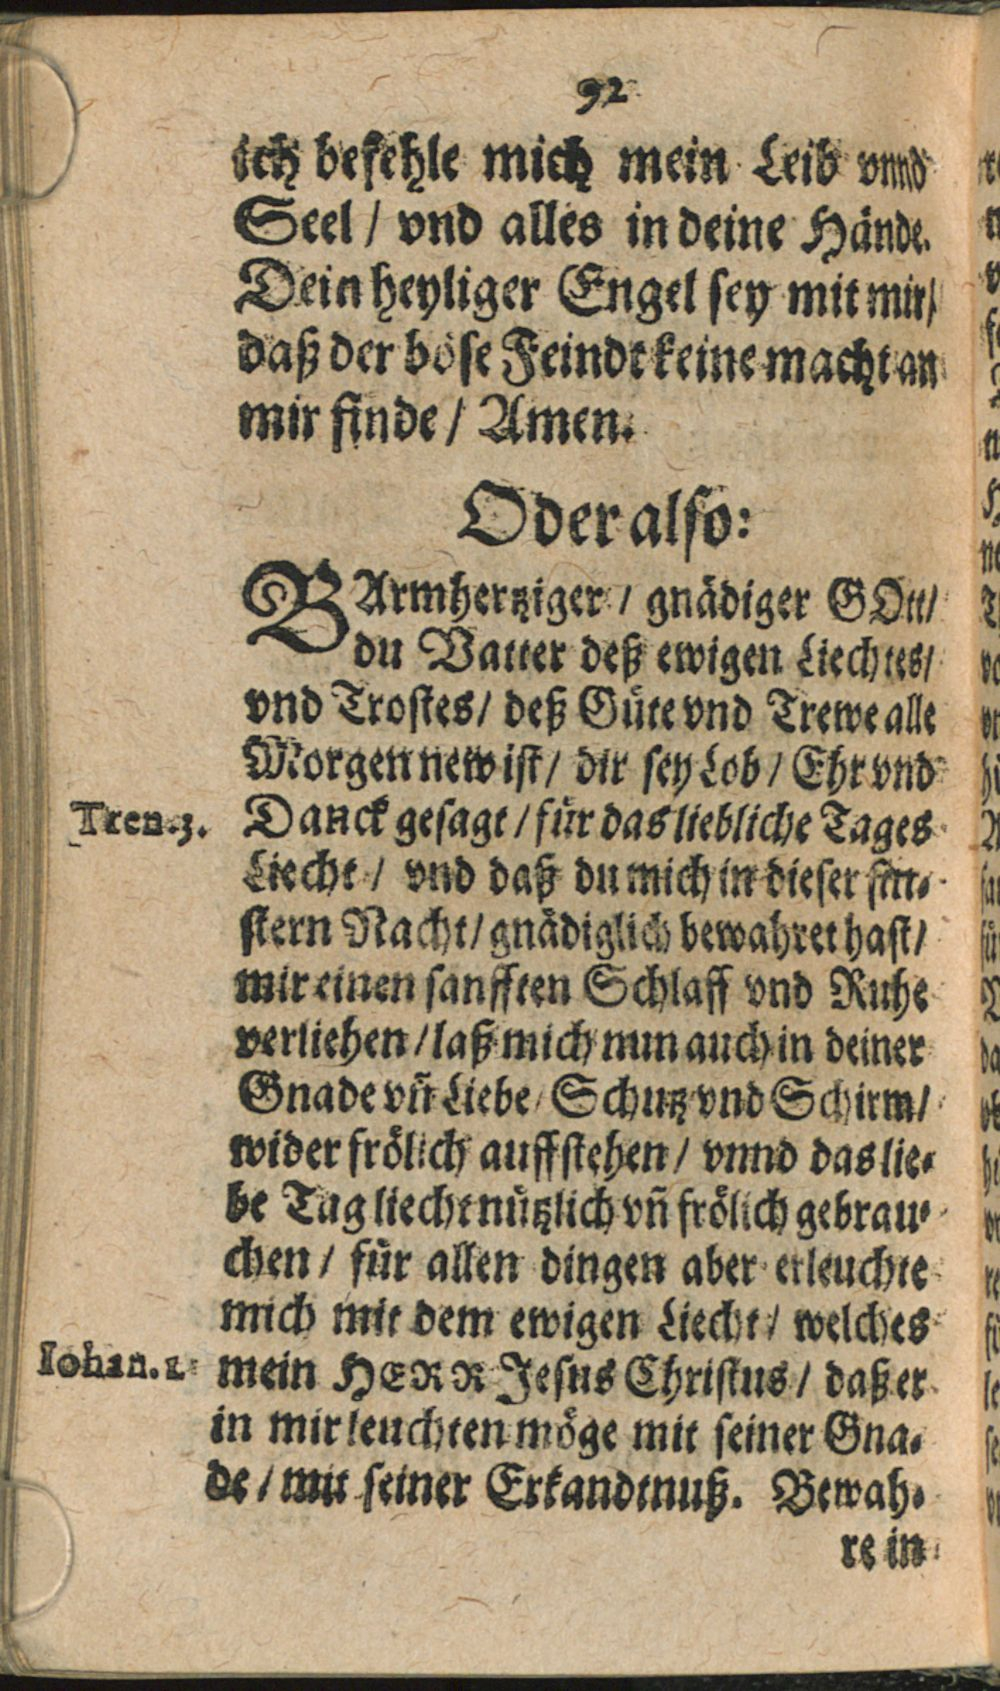 92
ich befehle mich mein Leib vnnd
Seel / vnd alles in deine Hände.
Dein heyliger Engel sey mit mir /
daß der böse Feindt keine macht an
mir finde / Amen.
Oder also:
BArmhertziger / gnädiger GOtt /
du Vatter deß ewigen Liechtes /
vnd Trostes / deß Güte vnd Trewe alle
Morgen new ist / dir sey Lob / Ehr vnd
Tren. 3.
Danck gesagt / für das liebliche Tages
Liecht / vnd daß du mich in dieser fin-
stern Nacht / gnädiglich bewahret hast /
mir einen sanfften Schlaff vnd Ruhe
verliehen / laß mich nun auch in deiner
Gnade vñ Liebe / Schutz vnd Schirm /
wider frölich auffstehen / vnnd das lie-
be Tag liecht nützlich vñ frölich gebrau-
chen / für allen dingen aber erleuchte
mich mit dem ewigen Liecht / welches
Iohan. 1.
mein HERR Jesus Christus / daß er
in mir leuchten möge mit seiner Gna-
de / mit seiner Erkandtnuß. Bewah-
re in